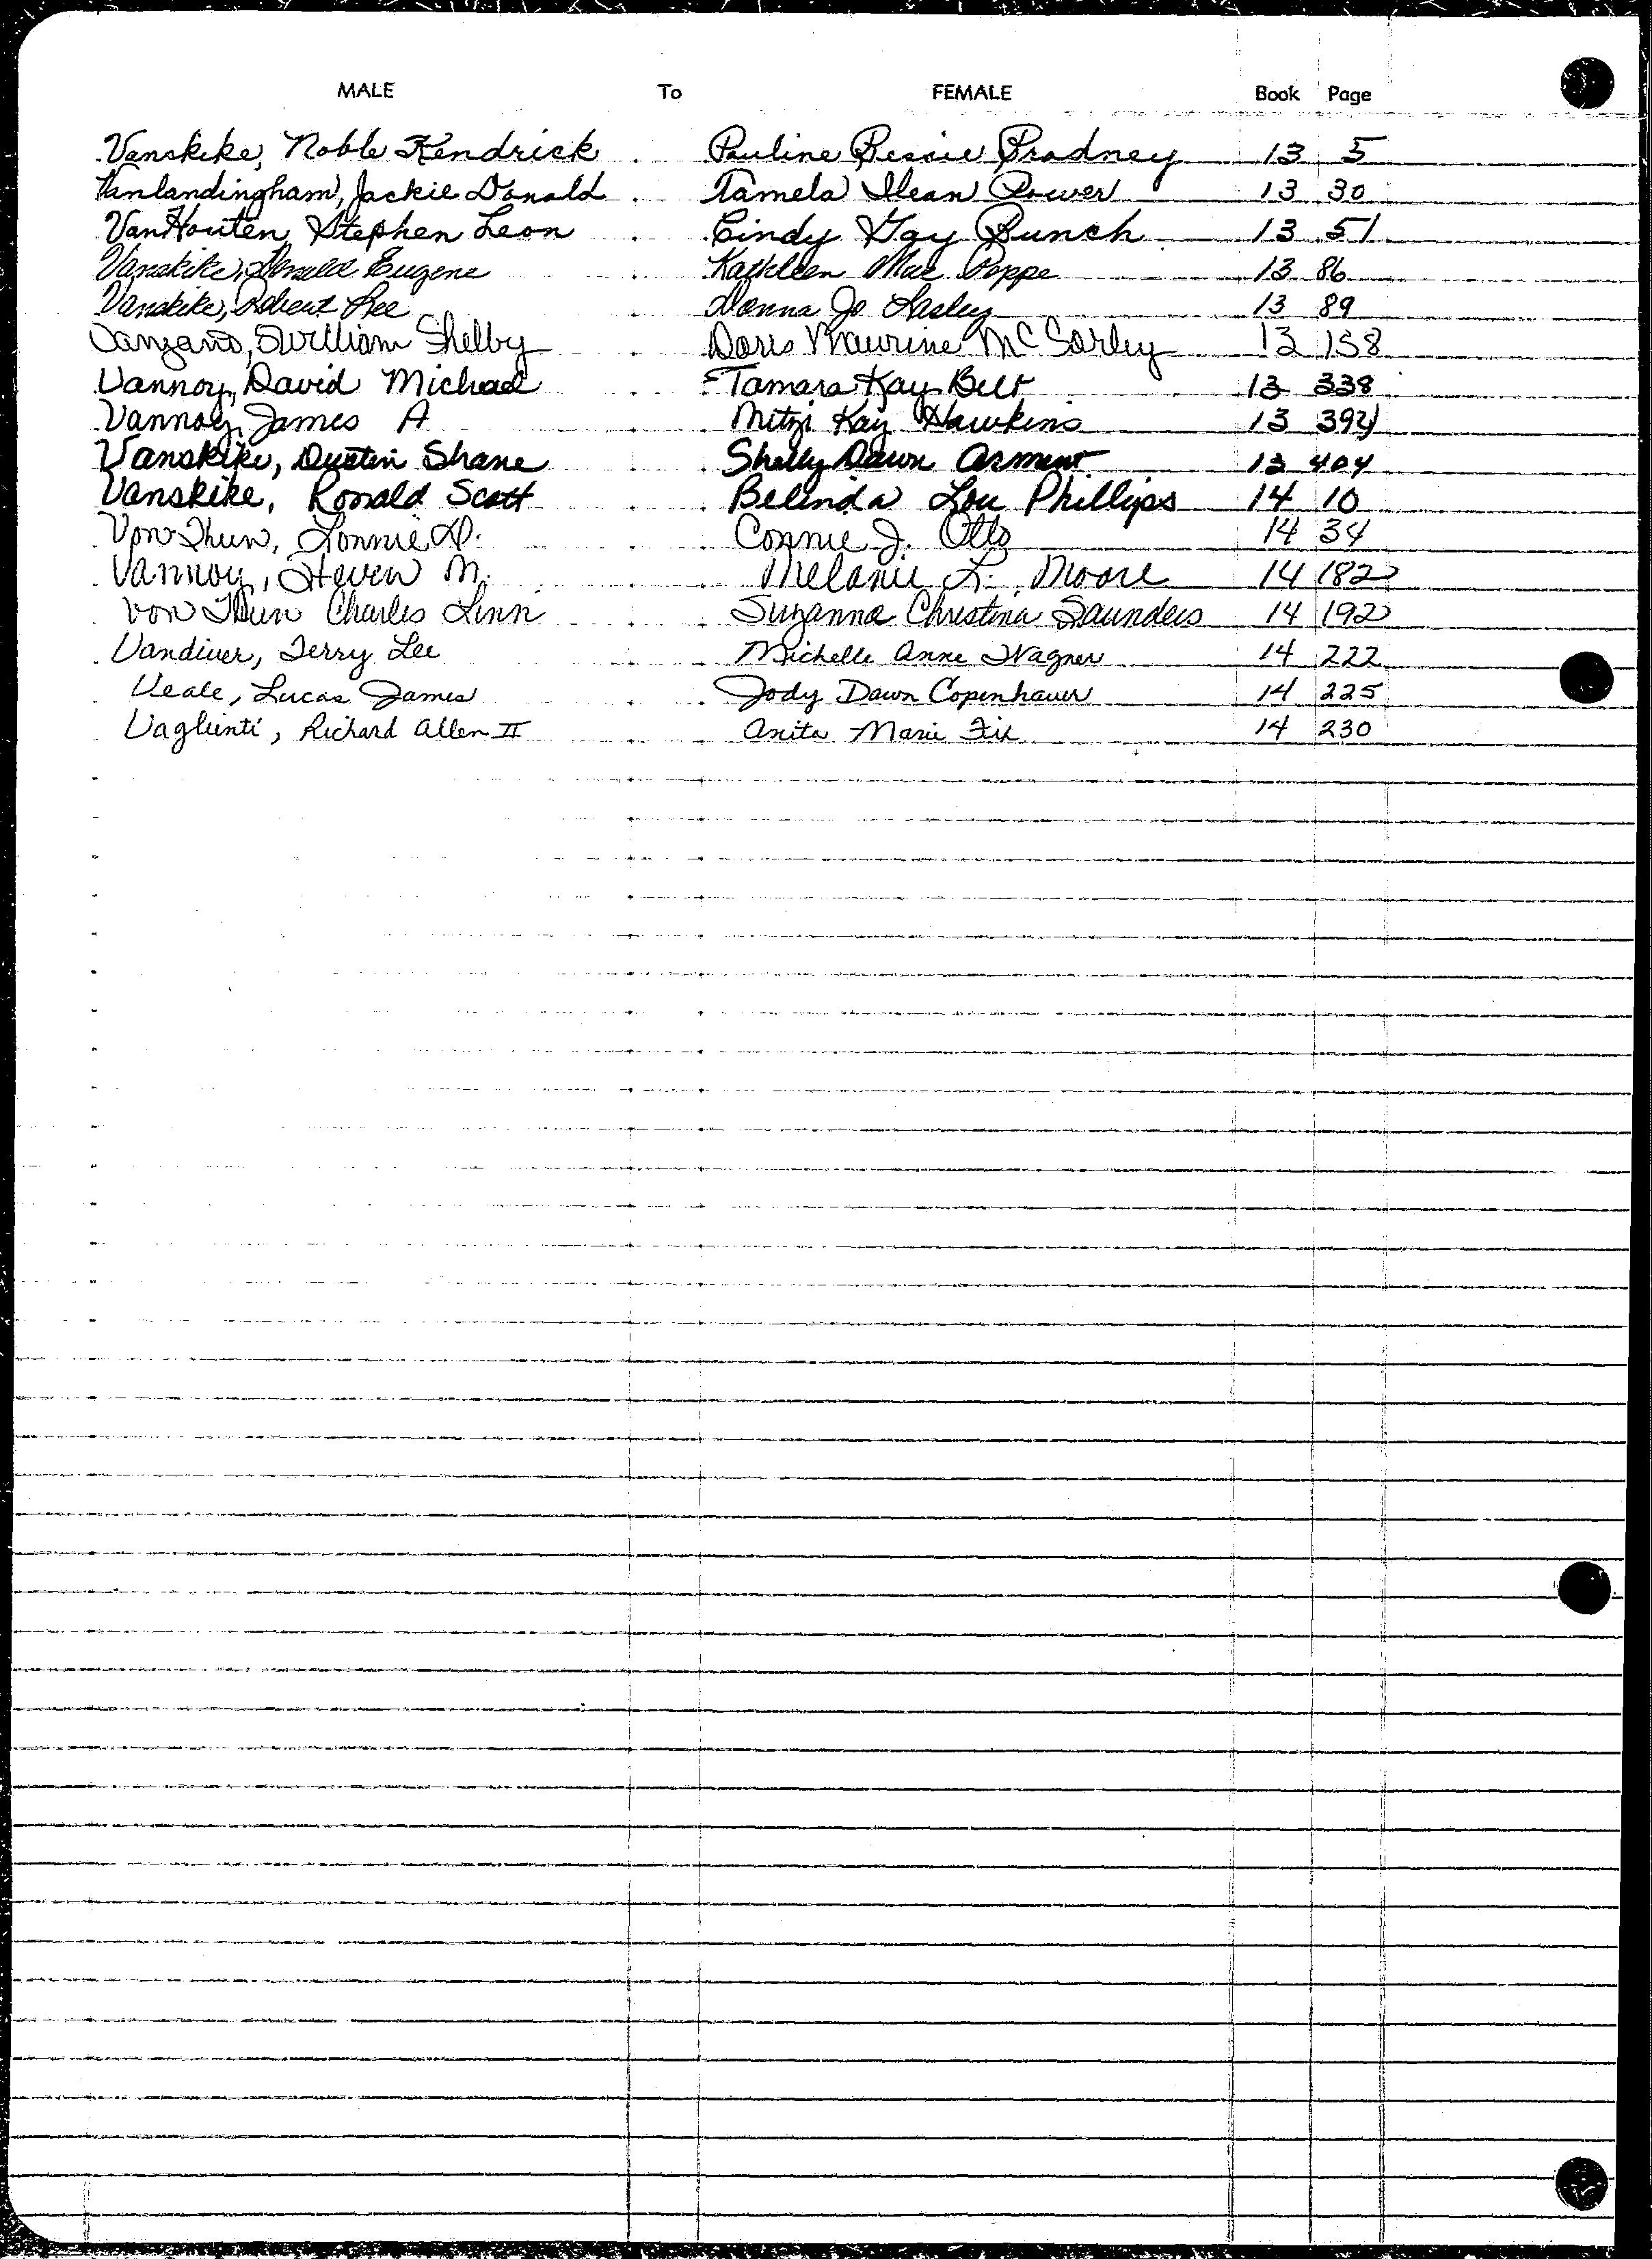 MALE To FEMALE Book Page
Vanskike, Noble Kendrick Pauline Bessie Bradney 13 5
Vanlandingham, Jackie Donald Tamela Ilean Power 13 30
VanHouten, Stephen Leon Cindy Gay Bunch 13 51
Vanskike, Donald Eugene Kathleen Mae Poppe 13 86
Vanskike, Robert Lee Donna Jo Lasley 13 89
Vanzant, William Shelby Doris Maurine McSorley 13 158
Vannoy, David Michael Tamara Kay Belt 13 338
Vannoy, James A Mitzi Kay Hawkins 13 394
Vanskike, Dustin Shane Shelly Dawn Arment 13 404
Vanskike, Ronald Scott Belinda Lou Phillips 14 10
Von Thun, Lonnie D. Connie J. Otto 14 34
Vannoy, Steven M. Melanie L. Moore 14 182
Von Thun Charles Linn Suzanne Christina Saunders 14 192
Vandiver, Terry Lee Michelle Anne Wagner 14 222
Veale, Lucas James Jody Dawn Copenhaver 14 225
Vaglienti, Richard Allen II Anita Marie 14 230